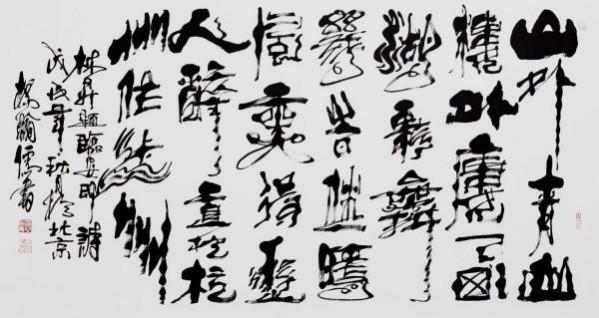 山外青山
樓外樓西
湖歌舞
幾旹休暖
風熏得遊
人醉直把杭
州作汴州
林昇題臨安邸詩
戊戌年秋月於北京
儒書